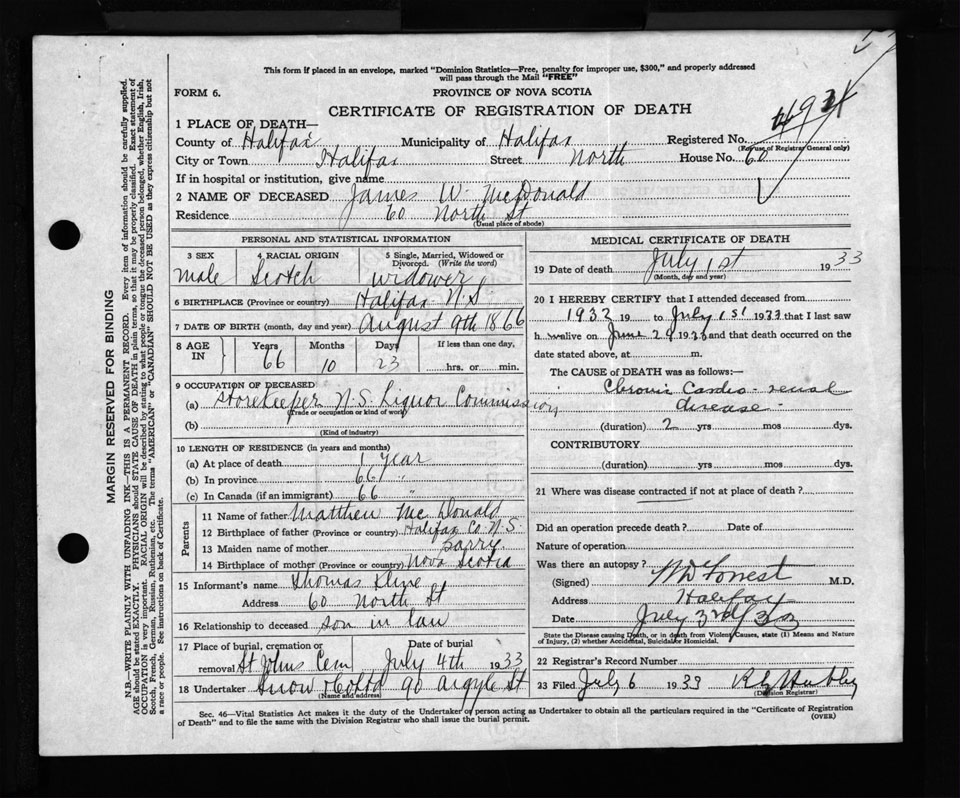 This form if placed in an envelope, marked "Dominion Statistics—Free, penalty for improper use, $300," and properly addressed
will pass through the Mail "FREE"
FORM 6.
PROVINCE OF NOVA SCOTIA
CERTIFICATE OF REGISTRATION OF DEATH
1 PLACE OF DEATH—
County of Halifax Municipality of Halifax Registered No.
(For use of Registrar General only)
City or Town Halifax Street North House No. 60
If in hospital or institution, give name
2 NAME OF DECEASED James W. McDonald
Residence 60 North St
(Usual place of abode)
PERSONAL AND STATISTICAL INFORMATION
3 SEX 4 RACIAL ORIGIN 5 Single, Married, Widowed or
Divorced. (Write the word)
Male Scotch widower
6 BIRTHPLACE (Province or country) Halifax N.S
7 DATE OF BIRTH (month, day and year) August 9th 1866
8 AGE IN Years Months Days If less than one day,
66 10 23 hrs. or min.
9 OCCUPATION OF DECEASED
(a) Storekeeper N.S. Liquor Commission
(Trade or occupation or kind of work)
(b)
(Kind of industry)
10 LENGTH OF RESIDENCE (in years and months)
(a) At place of death 1 year
(b) In province 66 "
(c) In Canada (if an immigrant) 66 "
Parents
11 Name of father Matthew McDonald
12 Birthplace of father (Province or country) Halifax Co. N.S.
13 Maiden name of mother Barry
14 Birthplace of mother (Province or country) Nova Scotia
15 Informant's name Thomas Kline
Address 60 North St
16 Relationship to deceased son in law
17 Place of burial, cremation or Date of burial
removal St Johns Cem July 4th 1933
18 Undertaker Snow & Co Ltd 90 Argyle St
(Name and address)
MEDICAL CERTIFICATE OF DEATH
19 Date of death July 1st 1933
(Month, day and year)
20 I HEREBY CERTIFY that I attended deceased from
1932 19 to July 1st 1933 that I last saw
h alive on June 29 1933 and that death occurred on
date stated above, at m.
The CAUSE of DEATH was as follows:—
Chronic Cardio-renal
disease
(duration) 2 yrs mos dys.
CONTRIBUTORY
(duration) yrs mos dys.
21 Where was disease contracted if not at place of death?
Did an operation precede death? Date of
Nature of operation
Was there an autopsy?
(Signed) WD Forrest M.D.
Address Halifax
Date July 3rd/33
State the Disease causing Death, or in death from Violent Causes, state (1) Means and Nature
of Injury, (2) whether Accidental, Suicidal or Homicidal.
22 Registrar's Record Number
23 Filed July 6 1933
(Division Registrar)
Sec. 46—Vital Statistics Act makes it the duty of the Undertaker or person acting as Undertaker to obtain all the particulars required in the "Certificate of Registration
of Death" and to file the same with the Division Registrar who shall issue the burial permit.
(OVER)
MARGIN RESERVED FOR BINDING
N.B.—WRITE PLAINLY WITH UNFADING INK—THIS IS A PERMANENT RECORD. Every item of information should be carefully supplied.
AGE should be stated EXACTLY. PHYSICIANS should STATE CAUSE OF DEATH in plain terms, so that it may be properly classified. Exact statement of
OCCUPATION is very important. RACIAL ORIGIN will be described by stating to what people or tongue the deceased person belonged, whether English, Irish,
Scotch, French, German, Russian, Ruthenian, etc. The terms "AMERICAN" or "CANADIAN" SHOULD NOT BE USED as they express citizenship but not
a race or people. See instructions on back of Certificate.